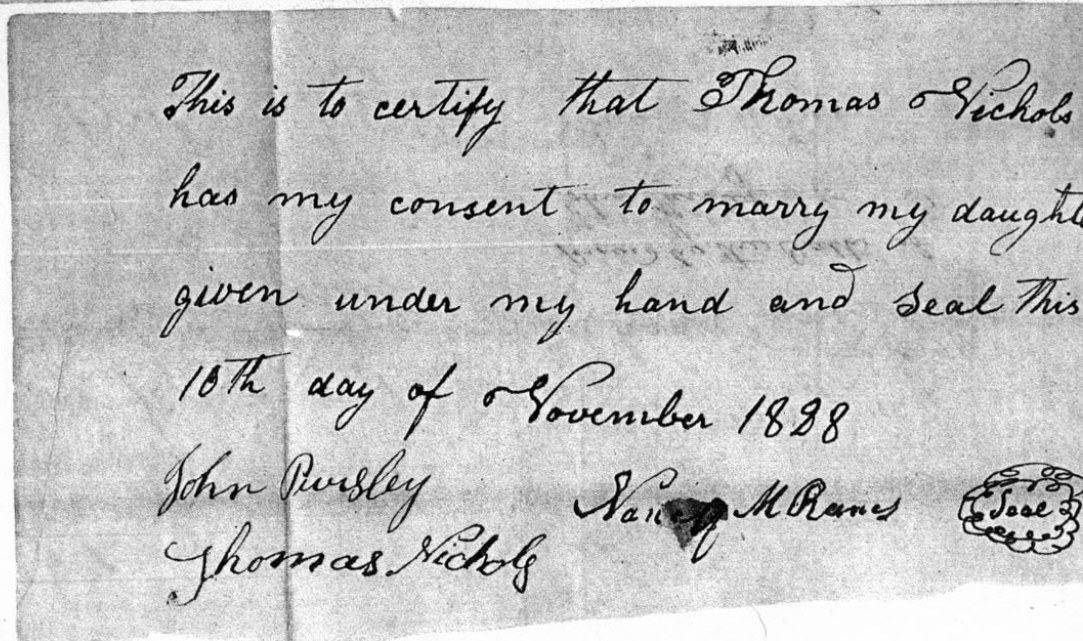 This is to certify that Thomas Nichols
has my consent to marry my daughte
given under my hand and Seal this
10th day of November 1828
John Pursley
Nancy M Ranes
Seal
Thomas Nichols